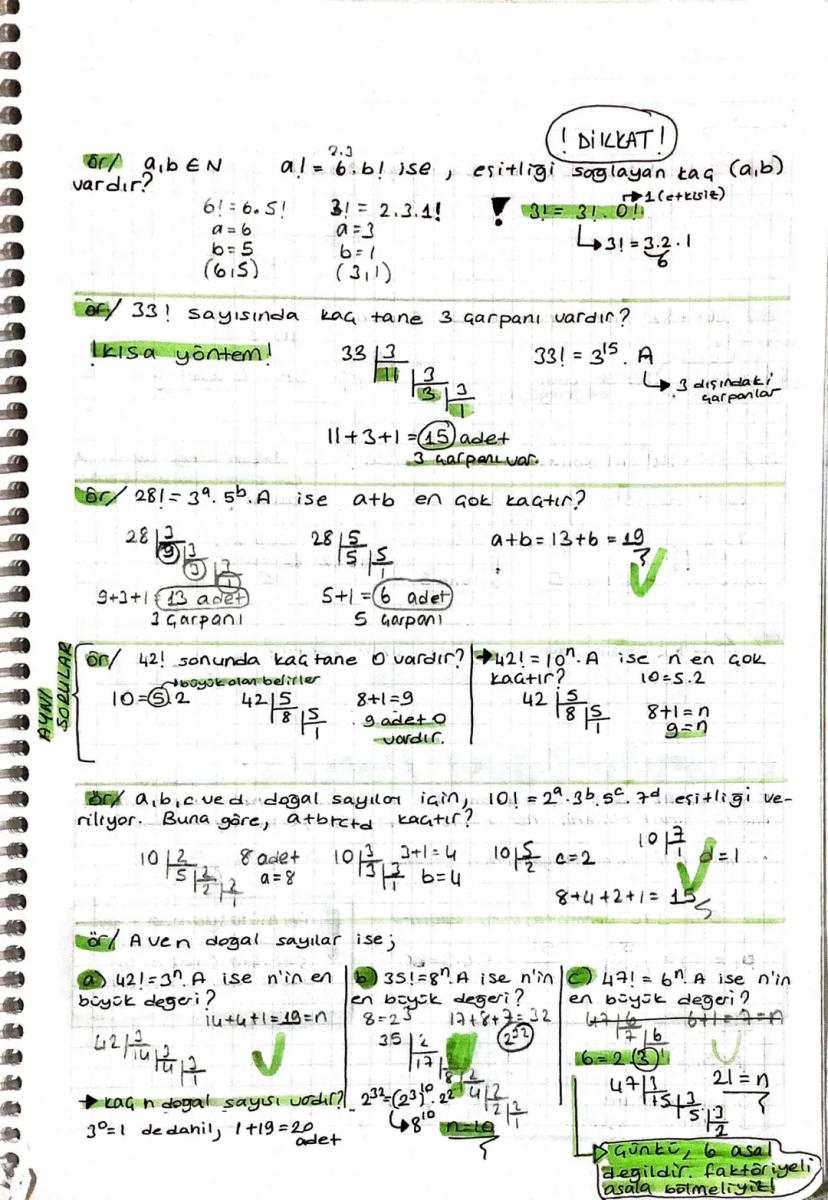 ! DİKKAT !
2.3
ör/ a,b ∈ N a! = 6.b! ise, eşitliği sağlayan kaç (a,b)
vardır?
→1 (etkisiz)
6! = 6.5! 3! = 2.3.1! ! 3! = 3!.0!
a=6 a=3 ↳3! = 3.2.1
b=5 b=1 6
(6,5) (3,1)
ör/ 33! sayısında kaç tane 3 çarpanı vardır?
!kısa yöntem! 33 | 3 33! = 3¹⁵. A
11 | 3 ↳ 3 dışındaki
3 | 3 çarpanlar
1
11+3+1 = 15 adet
3 çarpanı var.
ör/ 28! = 3ᵃ.5ᵇ.A ise a+b en çok kaçtır?
28 | 3 28 | 5 a+b = 13+6 = 19
9 | 3 5 | 5
3 | 3 1
1
9+3+1 = 13 adet 5+1 = 6 adet
3 çarpanı 5 çarpanı
AYNI
SORULAR
ör/ 42! sonunda kaç tane 0 vardır?
→büyük olan belirler
10=5.2 42 | 5 8+1=9
8 | 5 9 adet 0
1 vardır.
→42! = 10ⁿ.A ise n en çok
kaçtır? 10=5.2
42 | 5 8+1=n
8 | 5 9=n
1
ör/ a,b,c ve d doğal sayılar için, 10! = 2ᵃ.3ᵇ.5ᶜ.7ᵈ eşitliği ve-
riliyor. Buna göre, a+b+c+d kaçtır?
10 | 2 8 adet 10 | 3 3+1=4 10 | 5 c=2 10 | 7 d=1
5 | 2 a=8 3 | 3 b=4 2 1
2 | 2 1
1
8+4+2+1 = 15
ör/ A ve n doğal sayılar ise;
a) 42! = 3ⁿ.A ise n'in en
büyük değeri?
14+4+1=19=n
42 | 3
14 | 3
4 | 3
1
→ kaç n doğal sayısı vardır?
3⁰=1 de dahil, 1+19=20
adet
b) 35! = 8ⁿ.A ise n'in
en büyük değeri?
8=2³ 17+8+7=32
35 | 2 2³²
17 | 2
8 | 2
4 | 2
2 | 2
1
2³²=(2³)¹⁰.2²
↳8¹⁰ n=10
c) 47! = 6ⁿ.A ise n'in
en büyük değeri?
47 | 6 6+1=7=n
7 | 6
6=2.3
47 | 3 21=n
15 | 3
5 | 3
2
Çünkü, 6 asal
değildir. faktöriyeli
asala bölmeliyiz!